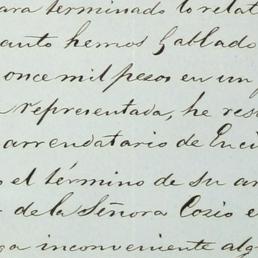 ara terminado lo relat
uanto hemos hablado
once mil pesos en un p
representada, he res
arrendatario de Enci
el término de su ar
de la Señora Cozio e
ga inconveniente alg